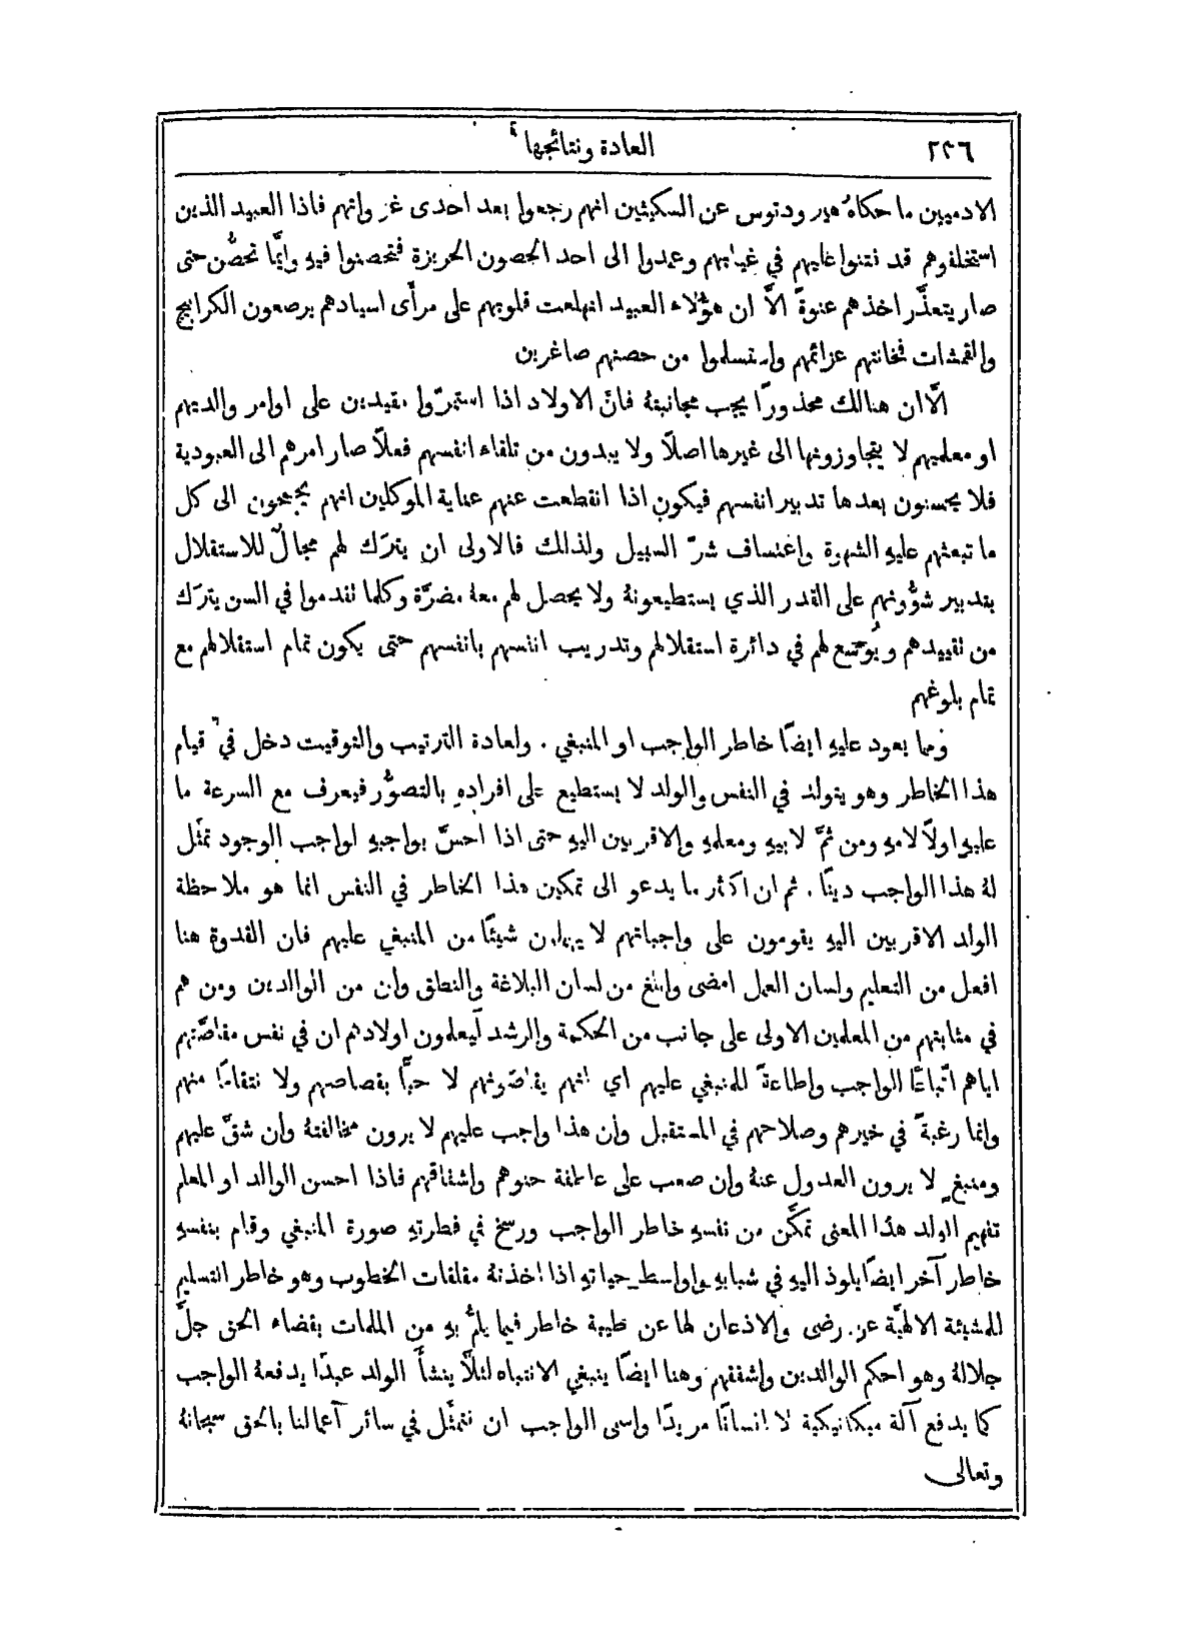 ٢٣٦ العادة ونتائجها
الادميين ما حكاهُ هيرودتوس عن السكيثيين انهم رجعوا بعد احدى غزواتهم فاذا العبيد الذين
استخلفوهم قد فتنوا عليهم في غيابهم وعمدوا الى احد الحصون الحريزة فتحصنوا فيهِ وايّما تحصُّن حتى
صار يتعذَّر اخذهم عنوةً الَّا ان هؤُلاء العبيد انهلعت قلوبهم على مرأَى اسيادهم يرصعون الكرابيج
والقمشات فخانتهم عزائمهم واستسلموا من حصنهم صاغرين
الَّا ان هنالك محذورًا يجب مجانبتهُ فانَّ الاولاد اذا استمرّوا مقيدين على اوامر والديهم
او معلميهم لا يتجاوزونها الى غيرها اصلًا ولا يبدون من تلقاء انفسهم فعلًا صار امرهم الى العبودية
فلا يحسنون بعدها تدبير انفسهم فيكون اذا انقطعت عنهم عناية الموكلين انهم يجمحون الى كل
ما تبعثهم عليهِ الشهوة واعتساف شرّ السبيل ولذلك فالاولى ان يترَك لهم مجالٌ للاستقلال
بتدبير شؤُونهم على القدر الذي يستطيعونهُ ولا يحصل لهم معهُ مضرَّة وكلما تقدموا في السن يترَك
من تقييدهم ويُوَسَّع لهم في دائرة استقلالهم وتدريب انفسهم بانفسهم حتى يكون تمام استقلالهم مع
تمام بلوغهم
ومما يعود عليهِ ايضًا خاطر الواجب او المنبغي. ولعادة الترتيب والتوقيت دخل في قيام
هذا الخاطر وهو يتولد في النفس والولد لا يستطيع على افرادهِ بالتصوُّر فيعرف مع السرعة ما
عليهِ اولًا لامهِ ومن ثمَّ لابيهِ ومعلمهِ والاقربين اليهِ حتى اذا احسَّ بواجبهِ لواجب الوجود تمثَّل
لهُ هذا الواجب دينًا. ثم ان اكثر ما يدعو الى تمكين هذا الخاطر في النفس انما هو ملاحظة
الولد الاقربين اليهِ يقومون على واجباتهم لا يهملون شيئًا من المنبغي عليهم فان القدوة هنا
افعل من التعليم ولسان العمل امضى وابلغ من لسان البلاغة والنطق وان من الوالدين ومن هم
في مثابتهم من المعلمين الاولى على جانب من الحكمة والرشد ليعلمون اولادهم ان في نفس مقاصَّتهم
اياهم اتّباعًا الواجب واطاعةً للمنبغي عليهم اي انهم يقاصّونهم لا حبًّا بقصاصهم ولا نتقامًا منهم
وانما رغبةً في خيرهم وصلاحهم في المستقبل وان هذا واجب عليهم لا يرون مخالفتهُ وان شقَّ عليهم
ومنبغٍ لا يرون العدول عنهُ وان صعب على عاطفة حنوهم واشفاقهم فاذا احسن الوالد او المعلم
تفهيم الولد هذا المعنى تمكَّن من نفسهِ خاطر الواجب ورسخ في فطرتهِ صورة المنبغي وقام بنفسهِ
خاطر آخر ايضًا يلوذ اليهِ في شبابهِ واواسط حياتهِ اذا اخذتهُ مقلقات الخطوب وهو خاطر التسليم
للمشيئة الالهيَّة عن رضى والاذعان لها عن طيبة خاطر فيما يلمُّ بهِ من الملمات بقضاء الحق جلَّ
جلالهُ وهو احكم الوالدين واشفقهم وهنا ايضًا ينبغي الانتباه لئلَّا ينشأَ الولد عبدًا يدفعهُ الواجب
كما يدفع آلة ميكانيكية لا انسانًا مريدًا واسمى الواجب ان نتمثَّل في سائر آعمالنا بالحق سبحانهُ
وتعالى